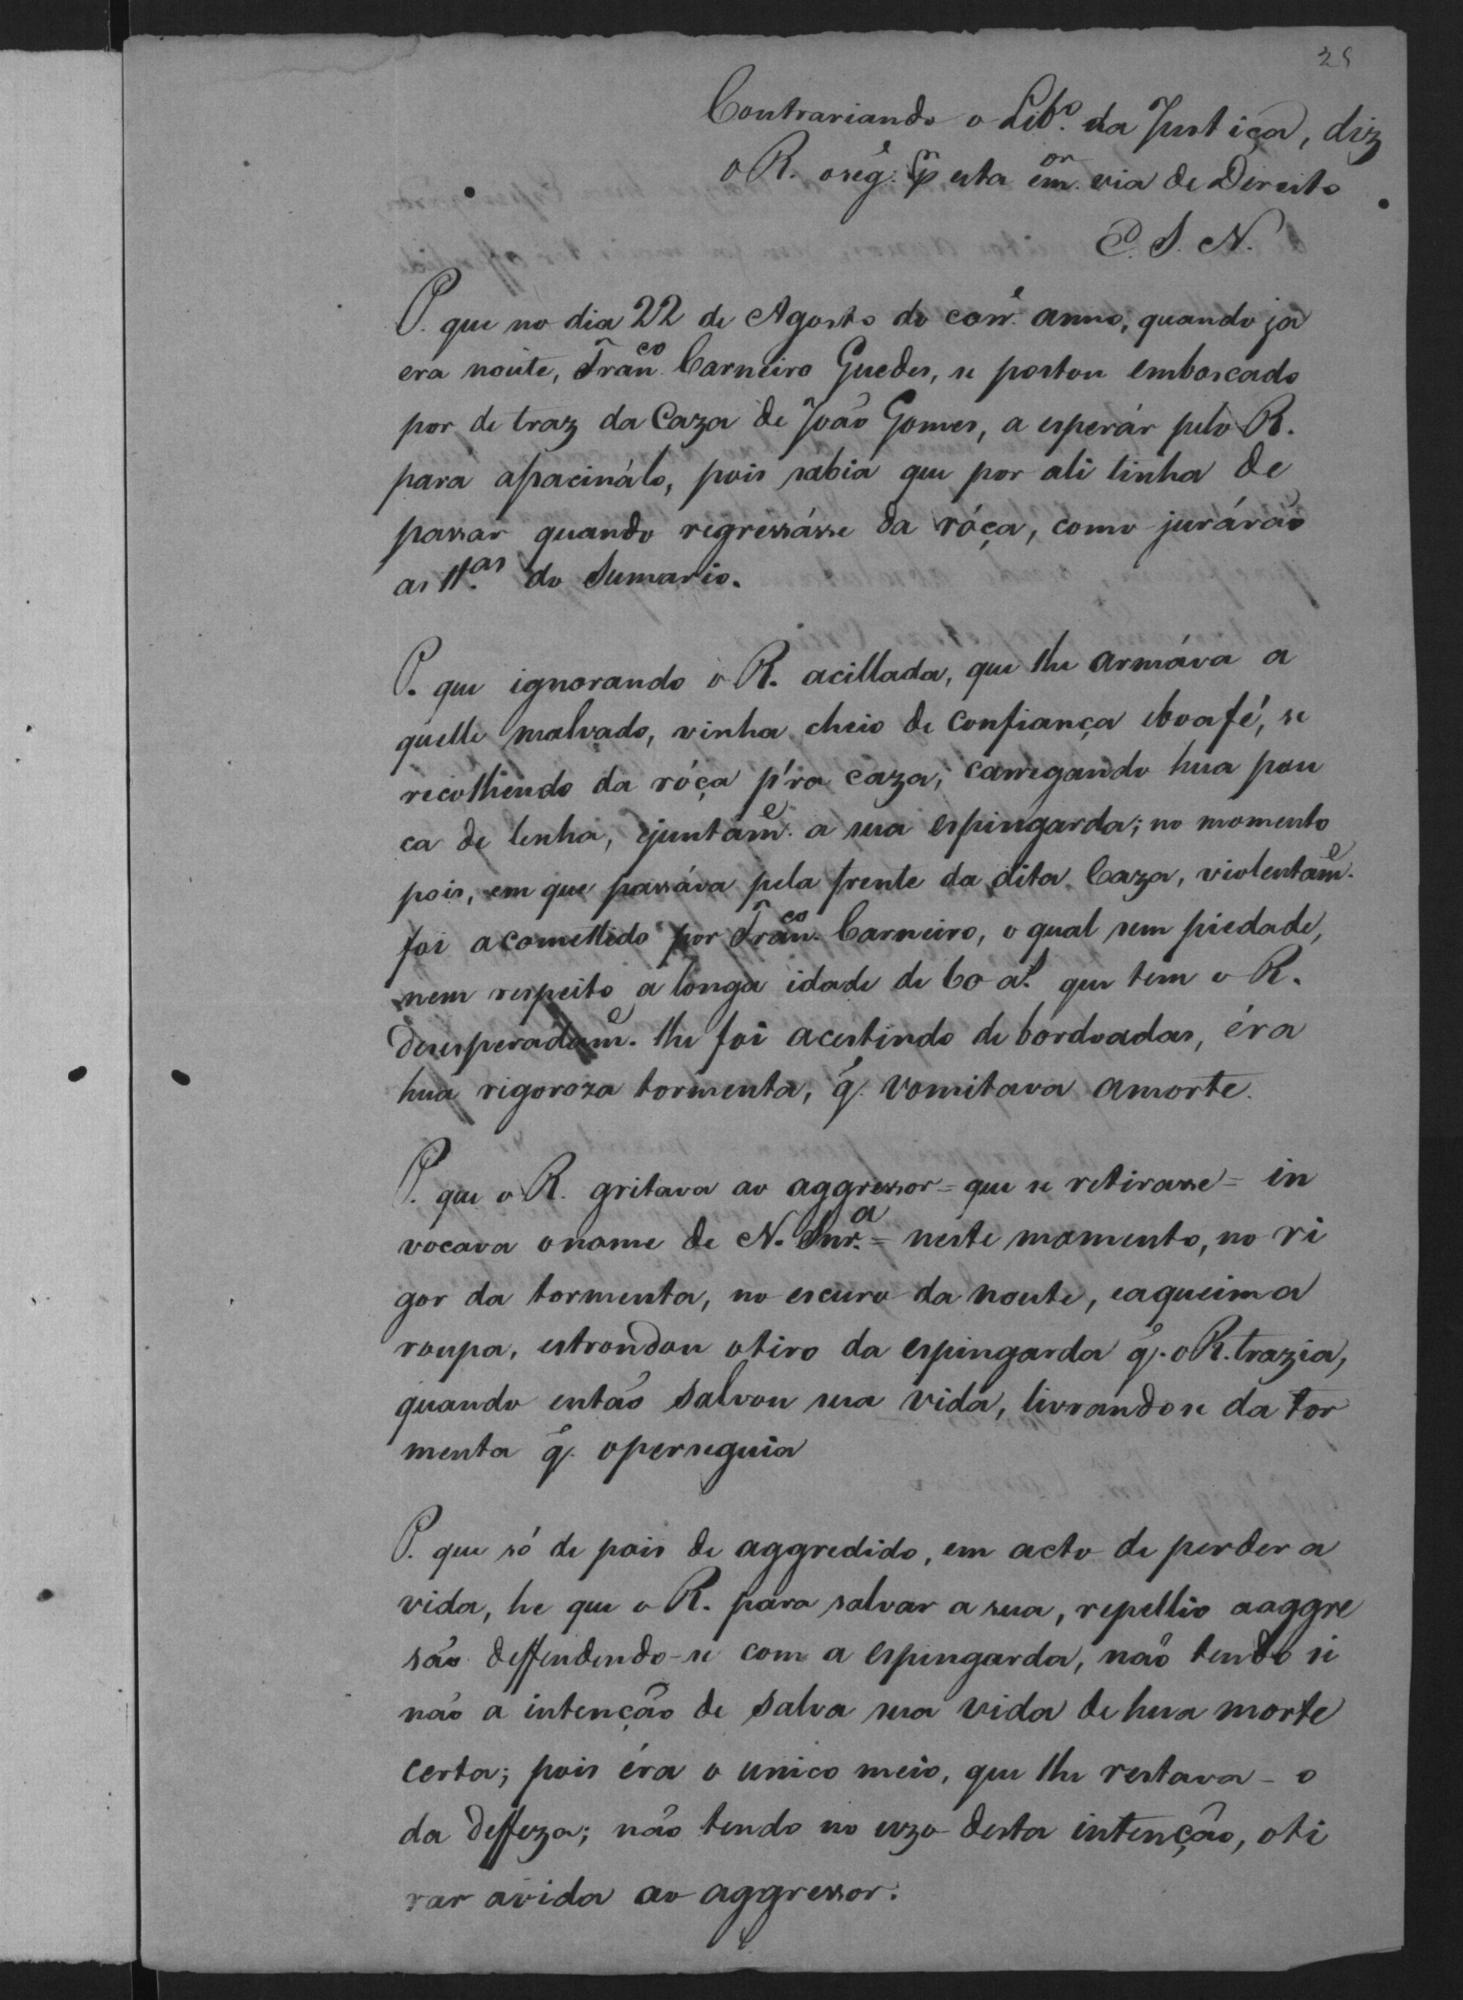 25
Contrariando o Lib.º da Justiça, diz
o R. o seg.e p.r esta e m.or via de Direito
E. S. N.
P. que no dia 22 de Agosto do corr.e anno, quando ja
era noute, Fran.co Carneiro Guedes, se postou emboscado
por de traz da Caza de João Gomes, a esperár pelo R.
para assacinálo, pois sabia que por ali tinha de
passar quando regressásse da róça, como jurárão
as tt.as do Sumario.
P. que ignorando o R. acillada, que lhe armáva a
quelle malvado, vinha cheio de confiança eboafé, se
recolhendo da róça p'ra caza; carregando hua pou
ca de lenha, ejuntam.e a sua espingarda; no momento
pois, em que passáva pela frente da dita Caza, violentam.e
foi acomettido por Fran.co Carneiro, o qual sem piedade,
nem respeito a longa idade de 60 a.s que tem o R.
desesperadam.e lhe foi acestindo de bordoadas, éra
hua rigoroza tormenta, q.e vomitava amorte.
P. que o R. gritava ao aggressor = que se retirasse = in
vocava onome de N. Snr.a = neste momento, no ri
gor da tormenta, no escuro da noute, eaqueima
roupa, estrondou otiro da espingarda q.e o R. trazia,
quando então salvou sua vida, livrandose da tor
menta q.e operseguia
P. que só de pois de aggredido, em acto de perder a
vida, he que o R. para salvar a sua, repellio aaggre
são deffendendo-se com a espingarda, não tendo si
não a intenção de salva sua vida de hua morte
certa; pois éra o unico meio, que lhe restava - o
da deffeza; não tendo no uzo desta intenção, oti
rar avida ao aggressor.